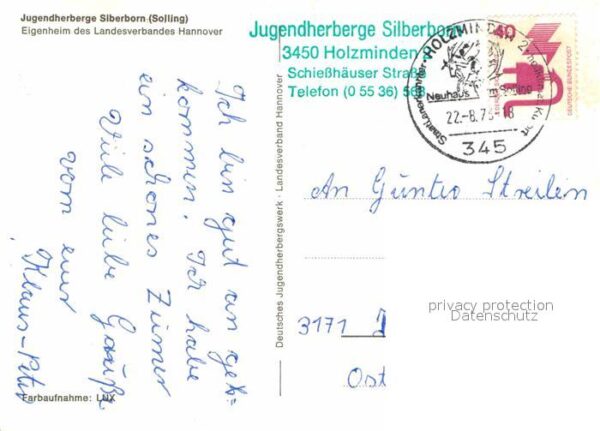 Jugendherberge Silberborn (Solling)
Eigenheim des Landesverbandes Hannover
Ich bin gut an geb-
kommen. Ich habe
ein schones Zimer
Viele liebe Grüße
vom eur
Klaus-Peter
Farbaufnahme: LUX
Deutsches Jugendherbergswerk · Landesverband Hannover
Jugendherberge Silberborn
3450 Holzminden
Schießhäuser Straße
Telefon (0 55 36) 568
HOLZMINDEN 2
Neuhaus
Staatl. anerkannter
22.-8.75-18
345
40
DEUTSCHE BUNDESPOST
An Günter Streilein
3171
Ost
privacy protection
Datenschutz